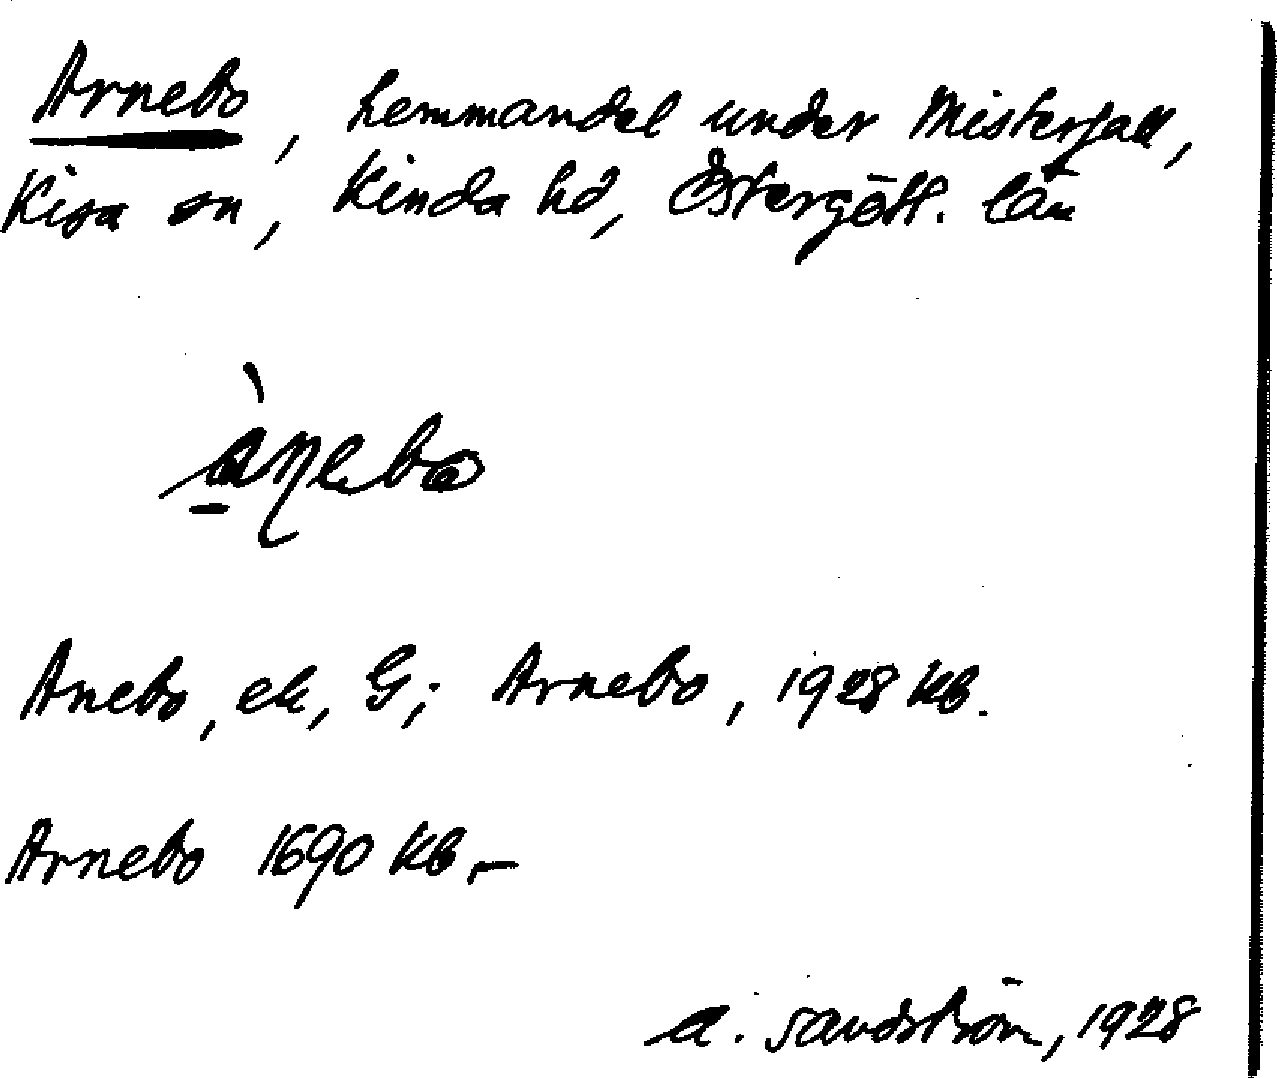 Arnebo, hemmandel under Misterfall,
Kisa sn, Kinda hd, Östergötl. län
ànebo
Anebo, ek, G; Arnebo, 1928 Kb.
Arnebo 1690 Kb.–
A. Sandström, 1928